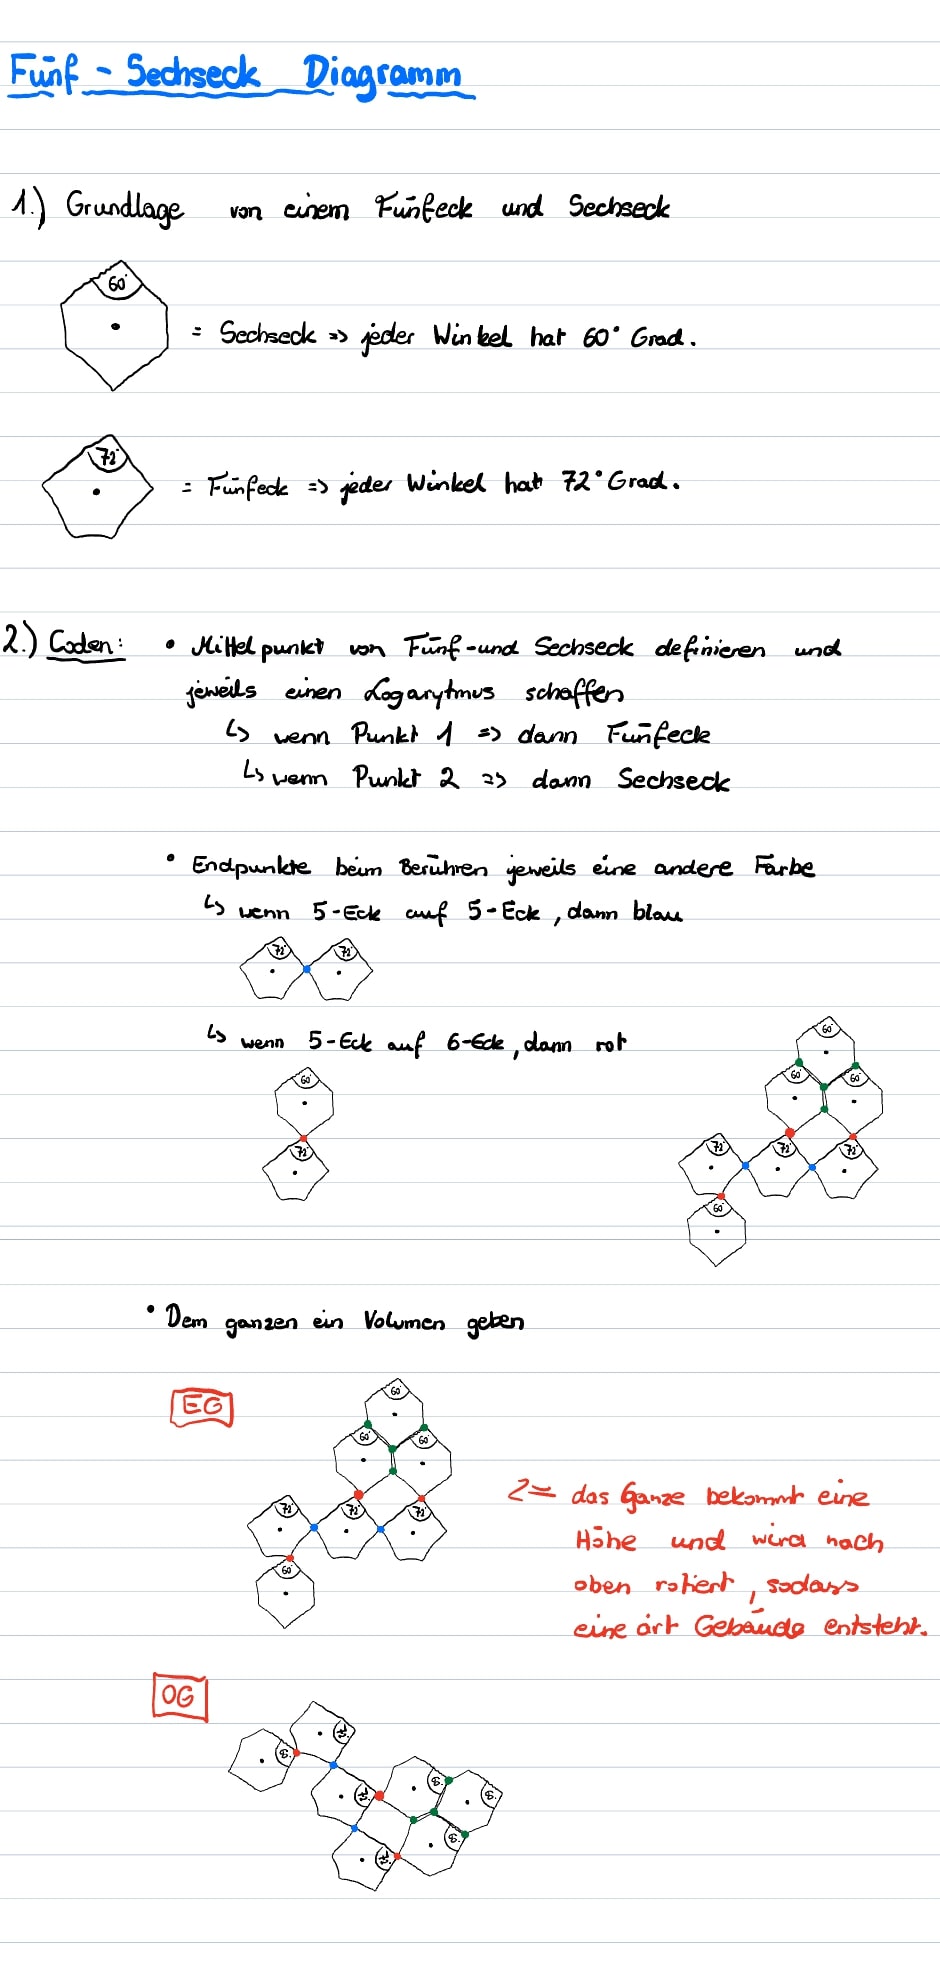 Fünf - Sechseck Diagramm
1.) Grundlage von einem Fünfeck und Sechseck
60°
= Sechseck => jeder Winkel hat 60° Grad.
72°
= Fünfeck => jeder Winkel hat 72° Grad.
2.) Coden: • Mittelpunkt von Fünf-und Sechseck definieren und
jeweils einen Logarytmus schaffen
↳ wenn Punkt 1 => dann Fünfeck
↳ wenn Punkt 2 => dann Sechseck
• Endpunkte beim Berühren jeweils eine andere Farbe
↳ wenn 5-Eck auf 5-Eck, dann blau
72° 72°
↳ wenn 5-Eck auf 6-Eck, dann rot
60°
60° 60°
60°
72° 72° 72°
72°
60°
• Dem ganzen ein Volumen geben
60°
EG
60° 60°
2= das Ganze bekommt eine
72° 72° 72°
Höhe und wird nach
60°
oben rotiert, sodass
eine art Gebäude entsteht.
OG
72°
60°
60° 60°
72°
60°
72°